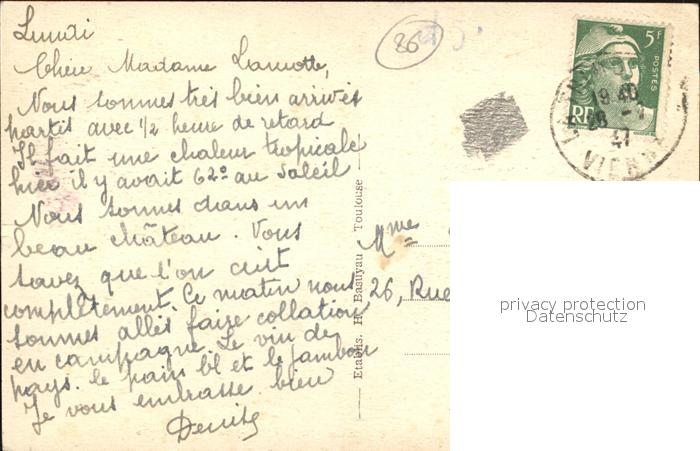 Lundi
Chère Madame Lamotte,
Nous sommes très bien arrivés
partis avec 1/2 heure de retard
Il fait une chaleur tropicale
hier il y avait 62° au soleil
Nous sommes dans un
beau château. Vous
savez que l'on cuit
complètement. Ce matin nous
sommes allés faire collation
en campagne. Le vin de
pays. le pain bl et le jambon
Je vous embrasse bien
Denise
86
5f
POSTES
RF
19 40
28 - 7
47
VIENNE
Etablis. H. Basuyau Toulouse
Mme
26, Rue
privacy protection
Datenschutz